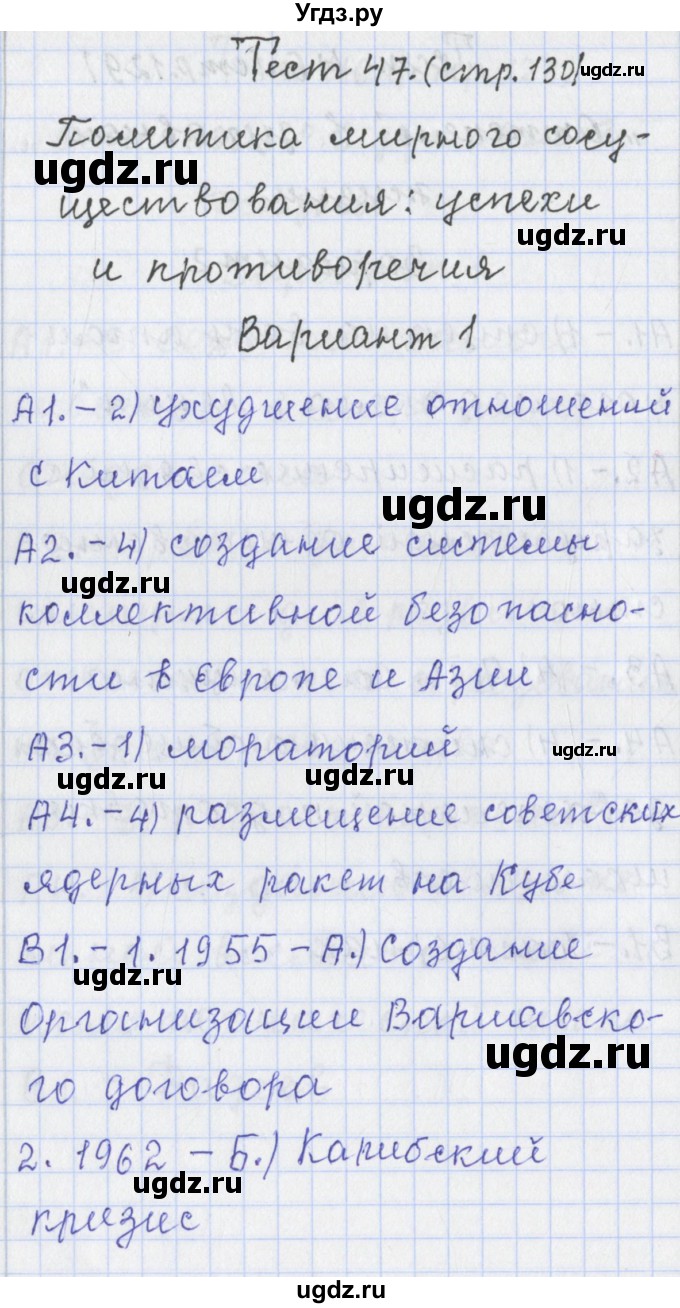 Угдз.ру
Тест 47. (стр. 130)
ugdz.ru
Политика мирного сосу-
ugdz.ru
ществования: успехи
ugdz.ru
и противоречия
Вариант 1
А1. - 2) ухудшение отношений
с Китаем
ugdz.ru
А2. - 4) создание системы
ugdz.ru
коллективной безопасно-
сти в Европе и Азии
А3. - 1) мораторий
ugdz.ru
ugdz.ru
ugdz.ru
А4. - 4) размещение советских
ядерных ракет на Кубе
В1. - 1. 1955 - А.) Создание
ugdz.ru
Организации Варшавско-
ugdz.ru
го договора
2. 1962 - Б.) Карибский
ugdz.ru
кризис
ugdz.ru